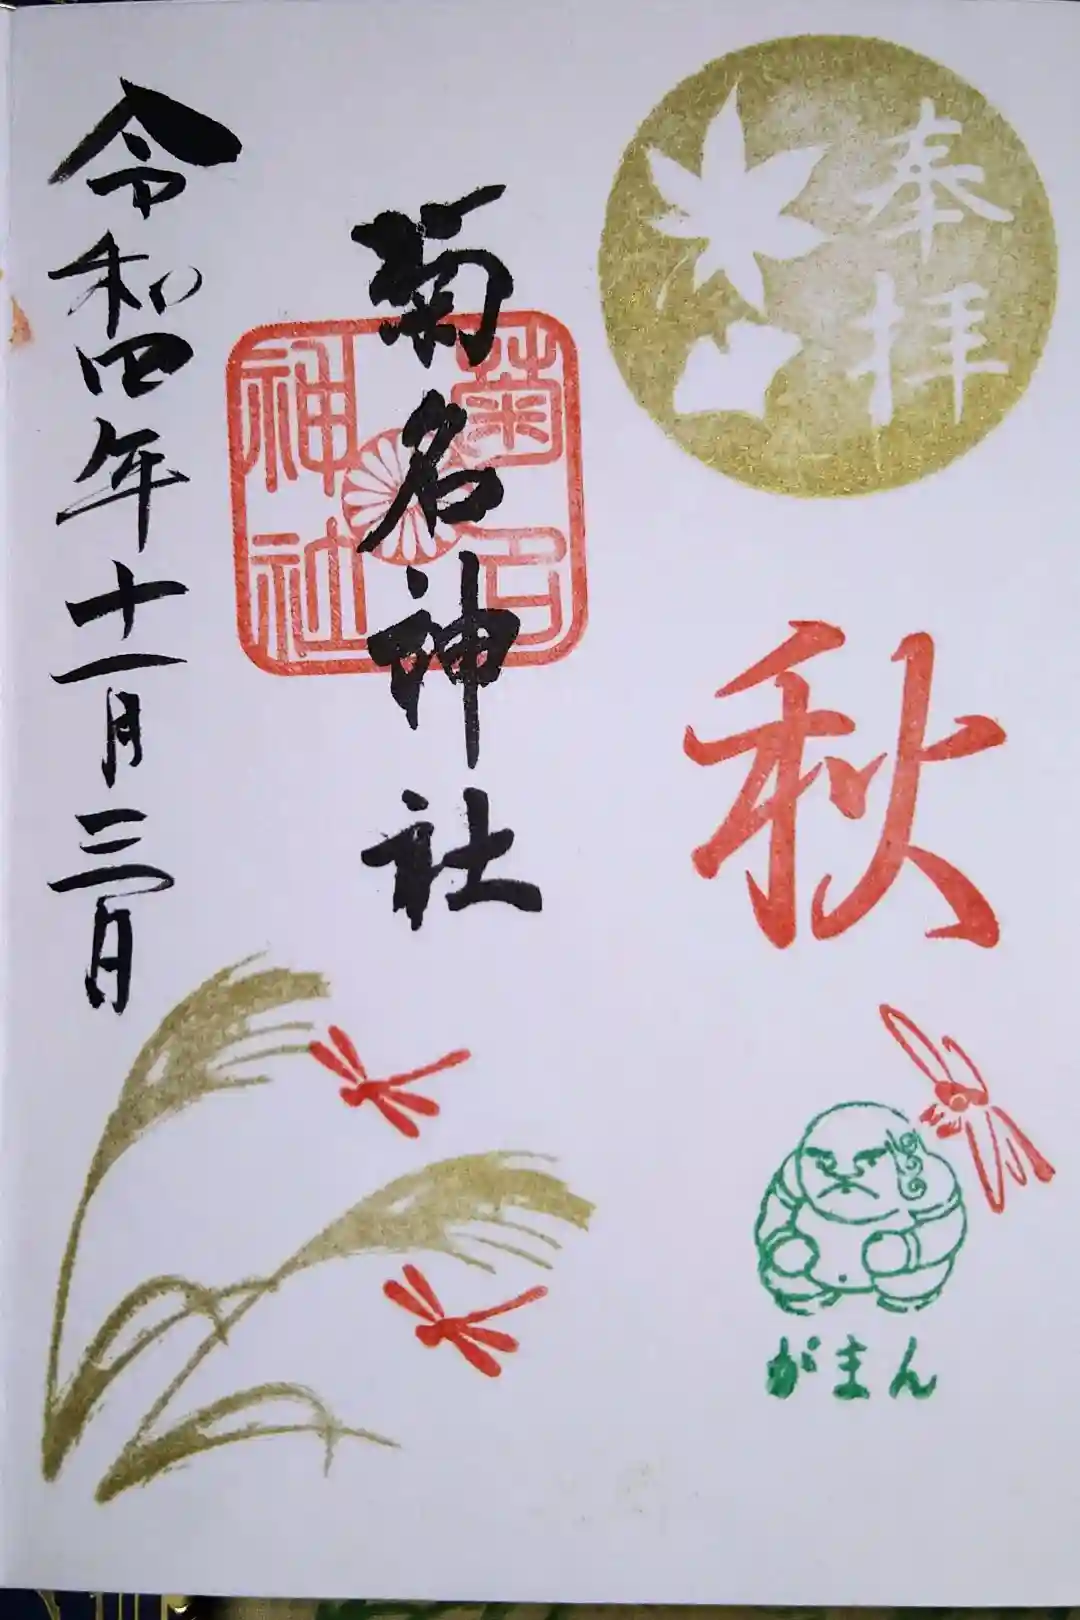 奉拝
秋
がまん
菊名神社
菊名
神社
令和四年十一月三日